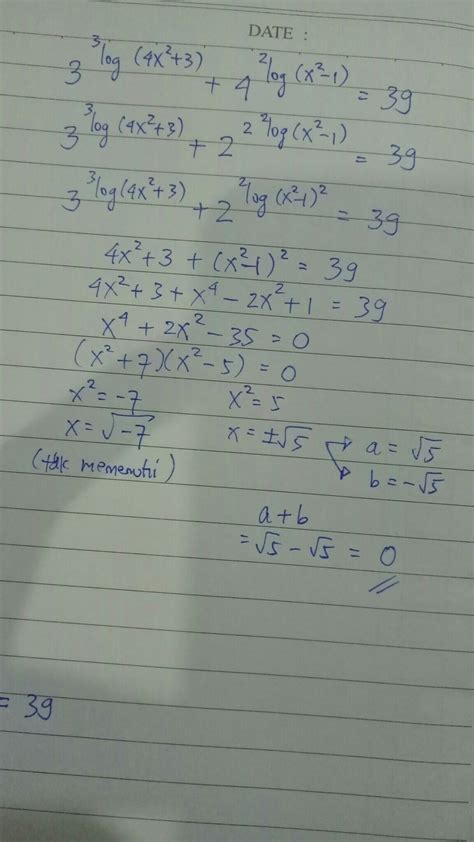 DATE :
3^³log (4x²+3) + 4^²log(x²-1) = 39
3^³log(4x²+3) + 2^2 ²log(x²-1) = 39
3^³log(4x²+3) + 2^²log(x²-1)² = 39
4x²+3 + (x²-1)² = 39
4x²+3 + x⁴ - 2x² + 1 = 39
x⁴ + 2x² - 35 = 0
(x²+7)(x²-5) = 0
x² = -7 x² = 5
x = √-7 x = ±√5 a = √5
(tdk memenuhi) b = -√5
a+b
= √5 - √5 = 0
= 39